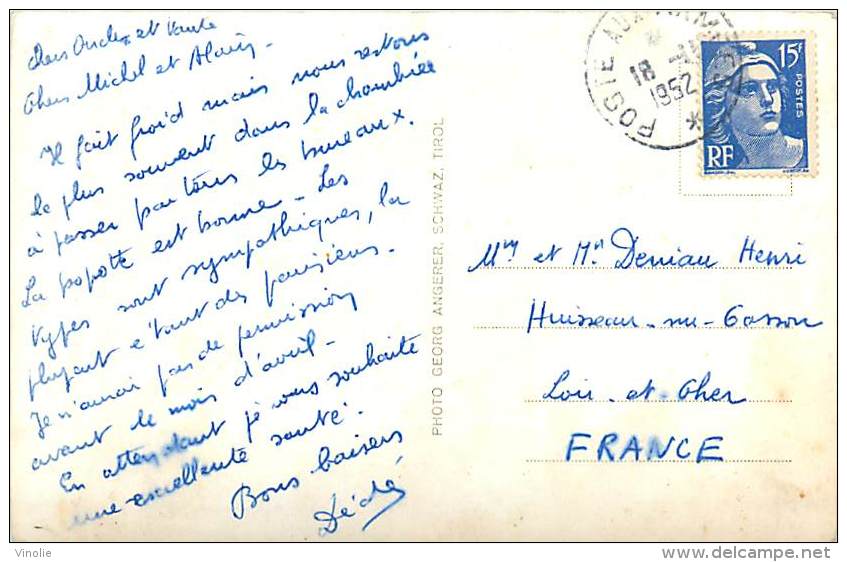 Chers Oncle et Tante
Chers Michel et Alain,
Il fait froid mais nous restons
le plus souvent dans la chambrée
à passer par tous les bureaux.
La popotte est bonne - Les
types sont sympathiques, la
plupart étant des parisiens.
Je n'aurai pas de permission
avant le mois d'avril -
En attendant je vous souhaite
une excellente santé.
Bons baisers
Dédé
PHOTO GEORG ANGERER, SCHWAZ, TIROL
POSTE AUX ARMÉES
18 -1
1952
15F
POSTES
RF
Mme et Mr Deniau Henri
Huisseau-sur-Cosson
Loir-et-Cher
FRANCE
Vinolie
www.delcampe.net